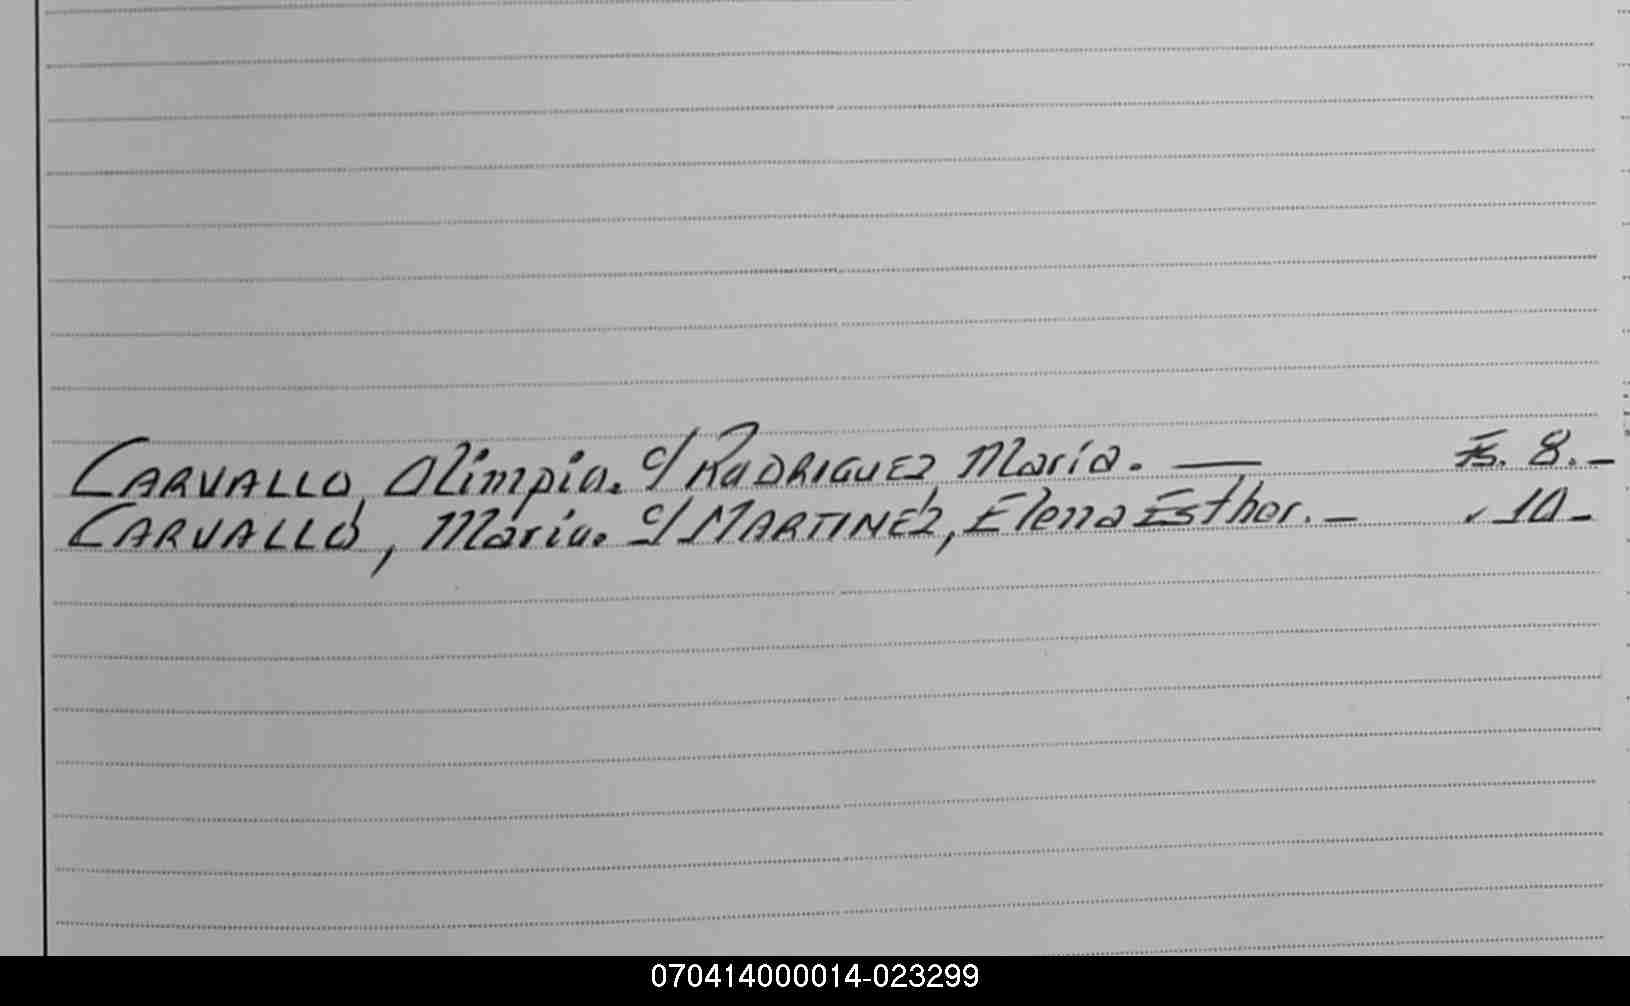 CARVALLO, Olimpia. c/ RODRIGUEZ, María. — Fs. 8. -
CARVALLO, María. c/ MARTINEZ, Elena Esther. - " 10 -
070414000014-023299